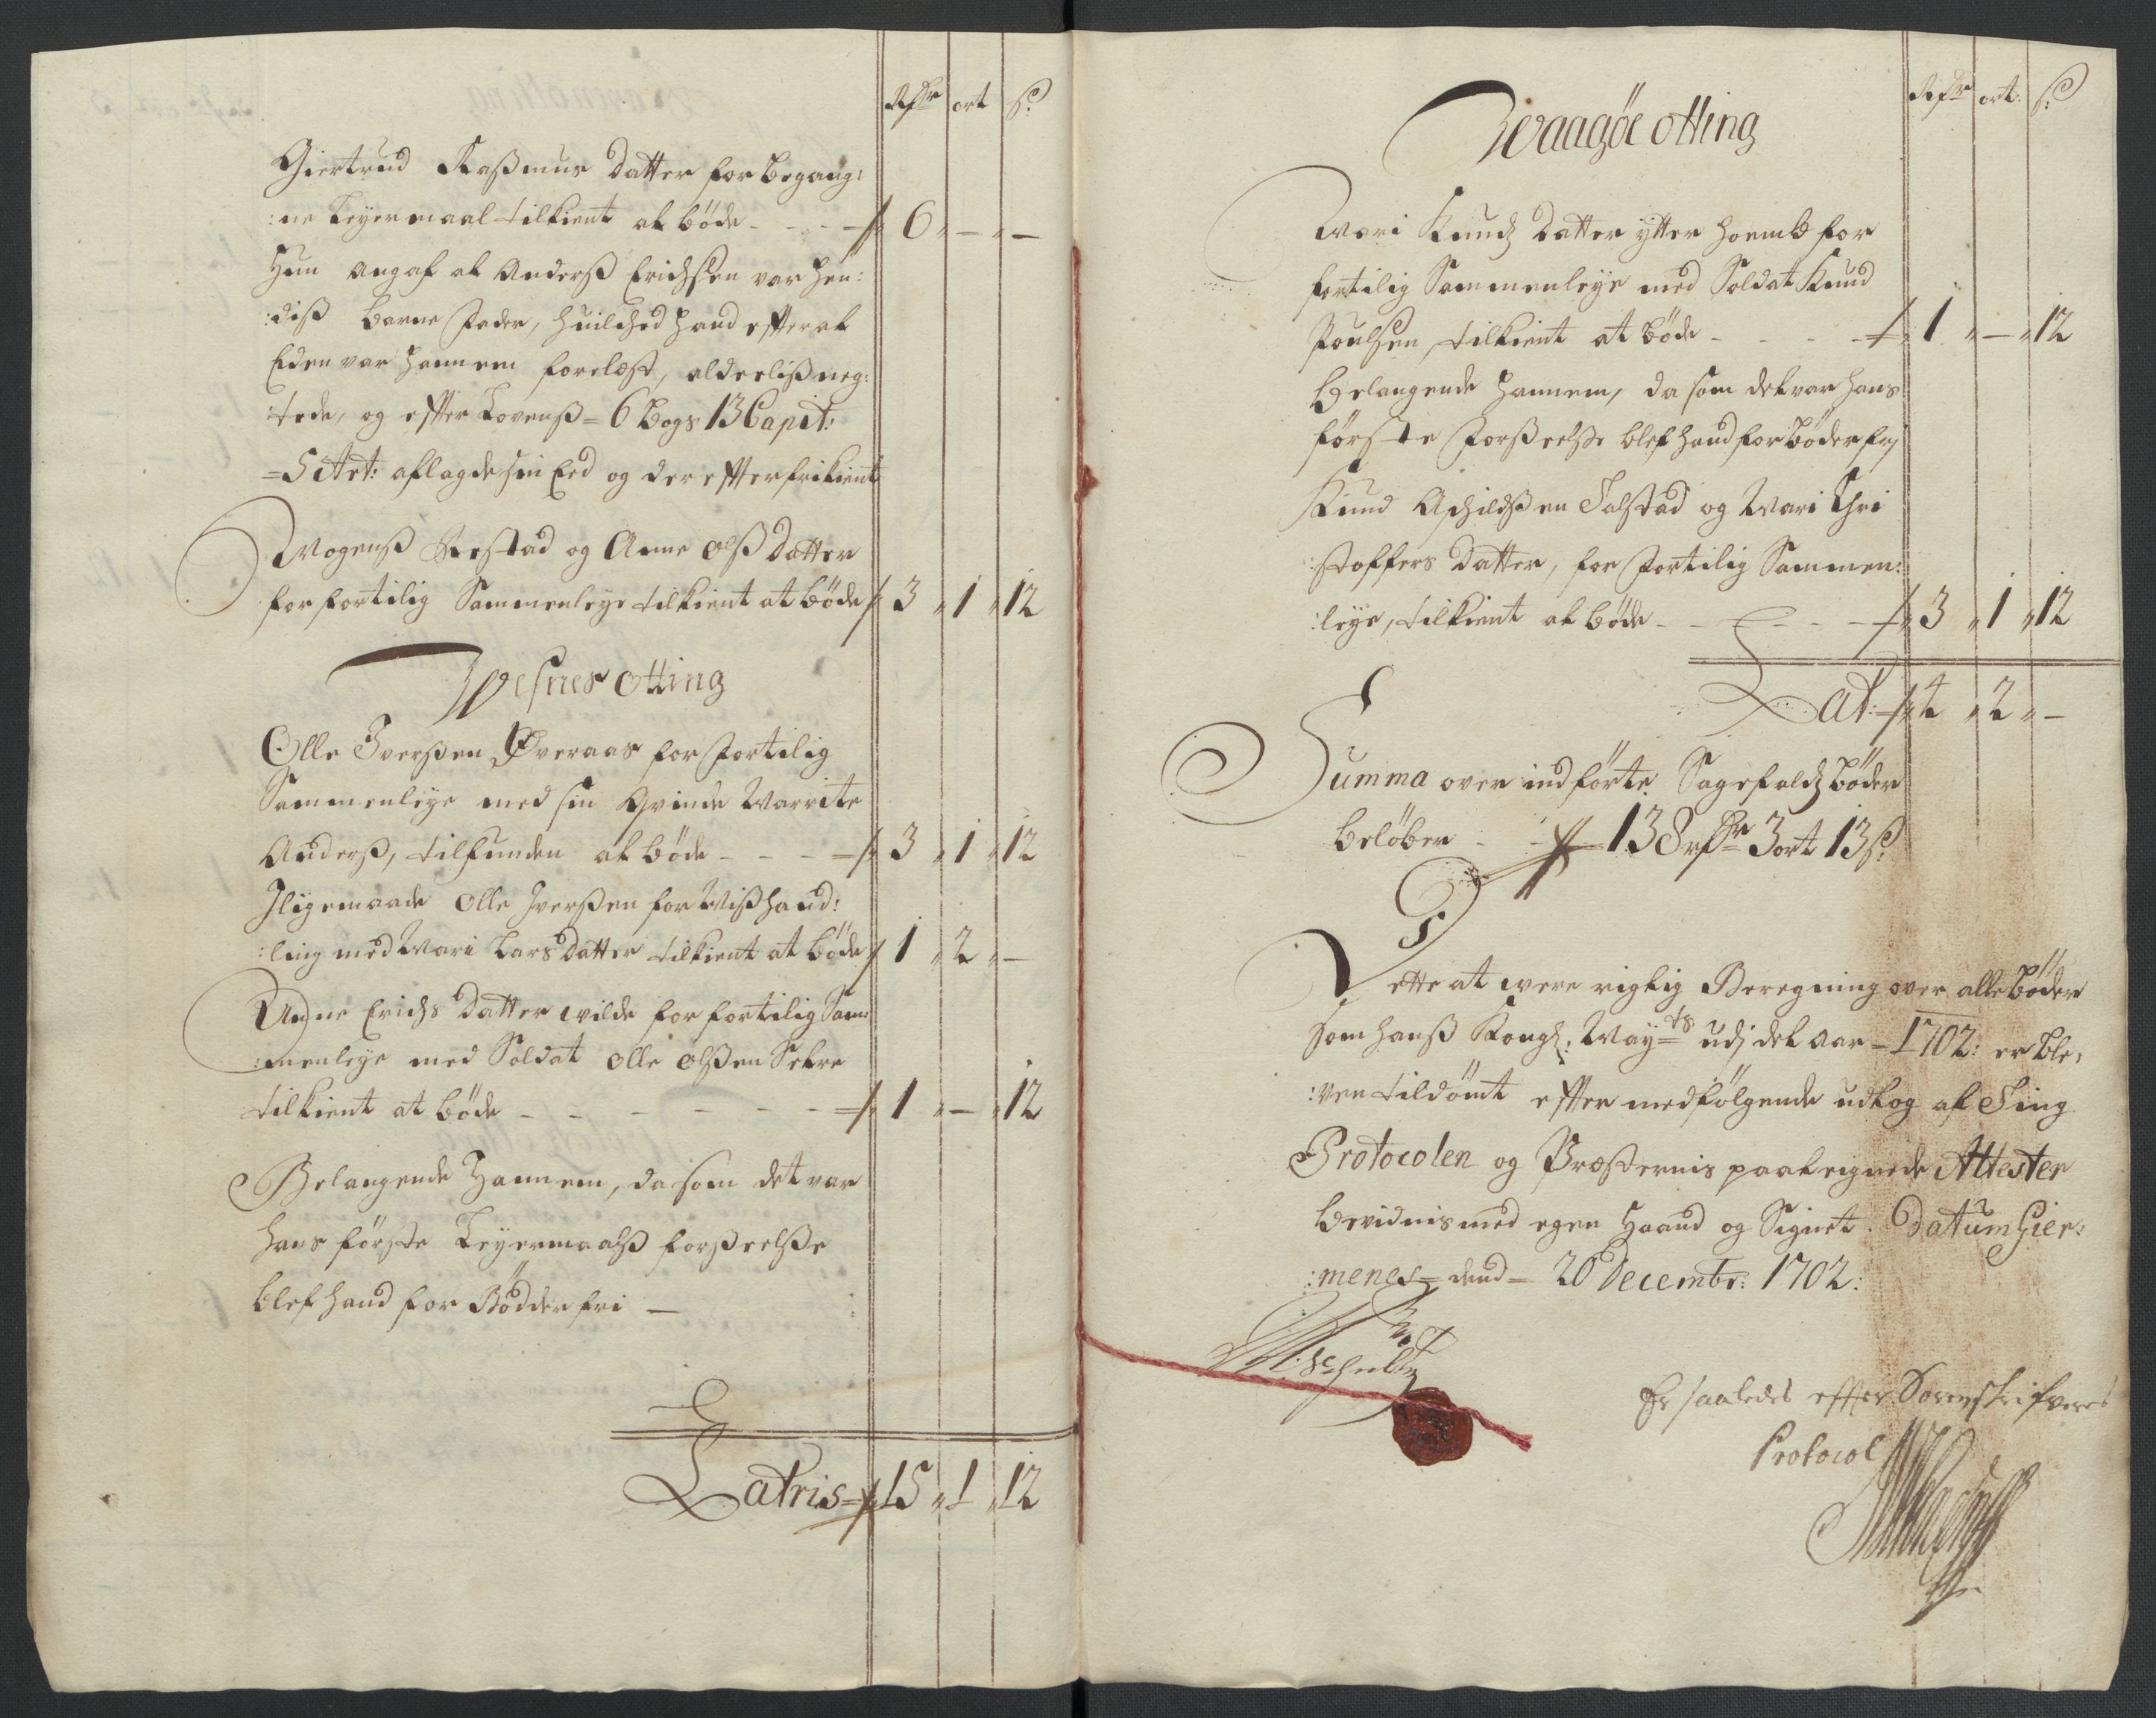 Rdr ort ß
Giertrud Raßmus datter for begang:
:ne Leyermaal tilkient at bøde - - - 6 " — " —
Hun angaf at Anderß Erichßen var hen:
:diß Barne Fader, huilched hand efter at
Eden var hannem forelæst, alderlis neg:
:tede, og efter Lovenß = 6 Bogs 13 Capit:
= 5 Art: aflagde sin Eed og derefter frikient
Mogenß Restad og Anne Olß datter
for fortilig Sammenleye tilkient at bøde 3 " 1 " 12
Wesnes otting
Olle Iverßen Øveraas for fortilig
Sammenleye med sin Qvinde Marrite
Anderß, tilfunden at bøde - - - 3 " 1 " 12
Iligemaade Olle Iverßen for Mißhand:
:ling med Mari Lars datter tilkient at bøde 1 " 2 " —
Ragne Erichs datter wilde for fortilig Sam:
:menleye med Soldat Olle Olßen Setre
tilkient at bøde - - - - - - 1 " — " 12
Belangende hannem, da som det var
hans første Leyermaalß forßeelße
blef hand for Bødder fri —
Latris 15 " 1 " 12
Rdr ort: ß
Waagøe otting
Mari Knudz datter ytter hoemb for
fortilig Sammenleye med Soldat Knud
Poulßen, tilkient at bøde - - - - 1 " — " 12
Belangende hannem, da som det var hans
første Forßeelße blef hand for bøder frj
Knud Aschildßen Talstad og Mari Chri
:stoffers datter, for fortilig Sammen:
:leye, tilkient at bøde - - - - 3 " 1 " 12
Lat: 4 " 2 " —
Summa over indførte Sagefaldz bøder
beløber - - 138 rdr 3 ort 13 ß
Dette at were rigtig Beregning over alle bøder
som hanß Kongl: May:ts udj det aar - 1702: er ble:
:ven tildømt efter medfølgende udtog af Ting
Protocolen og Præsternis paategnede Attester
bevidnis med egen Haand og Signet. Datum Gier:
:menes = dend = 20 Decembr: 1702:
Schultz
Er saaledes effter Sorenskrifverens
Protocol